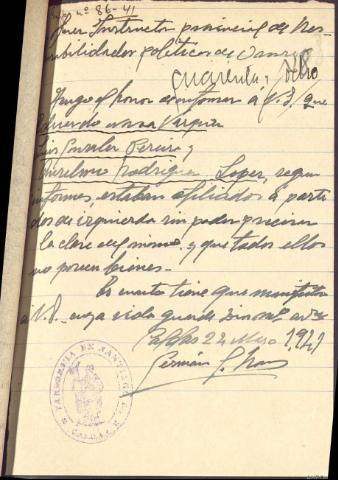 nº 86-41
Juez Instructor provincial de Res-
ponsabilidades políticas de Orense
cuarenta y ocho
Tengo el honor de informar á V.S. que
Eduardo Vazquez
Luis Gonzalez Pereira y
Anselmo Rodriguez Lopez, segun
informes, estaban afiliados a parti
dos de izquierda sin poder precisar
la clase del mismo, y que todos ellos
no poseen bienes.
Es cuanto tiene que manifestar
a V.S. cuya vida guarde Dios
22 Mayo 1941
Germán
PARROQUIA DE SANTIAGO
CALDAS